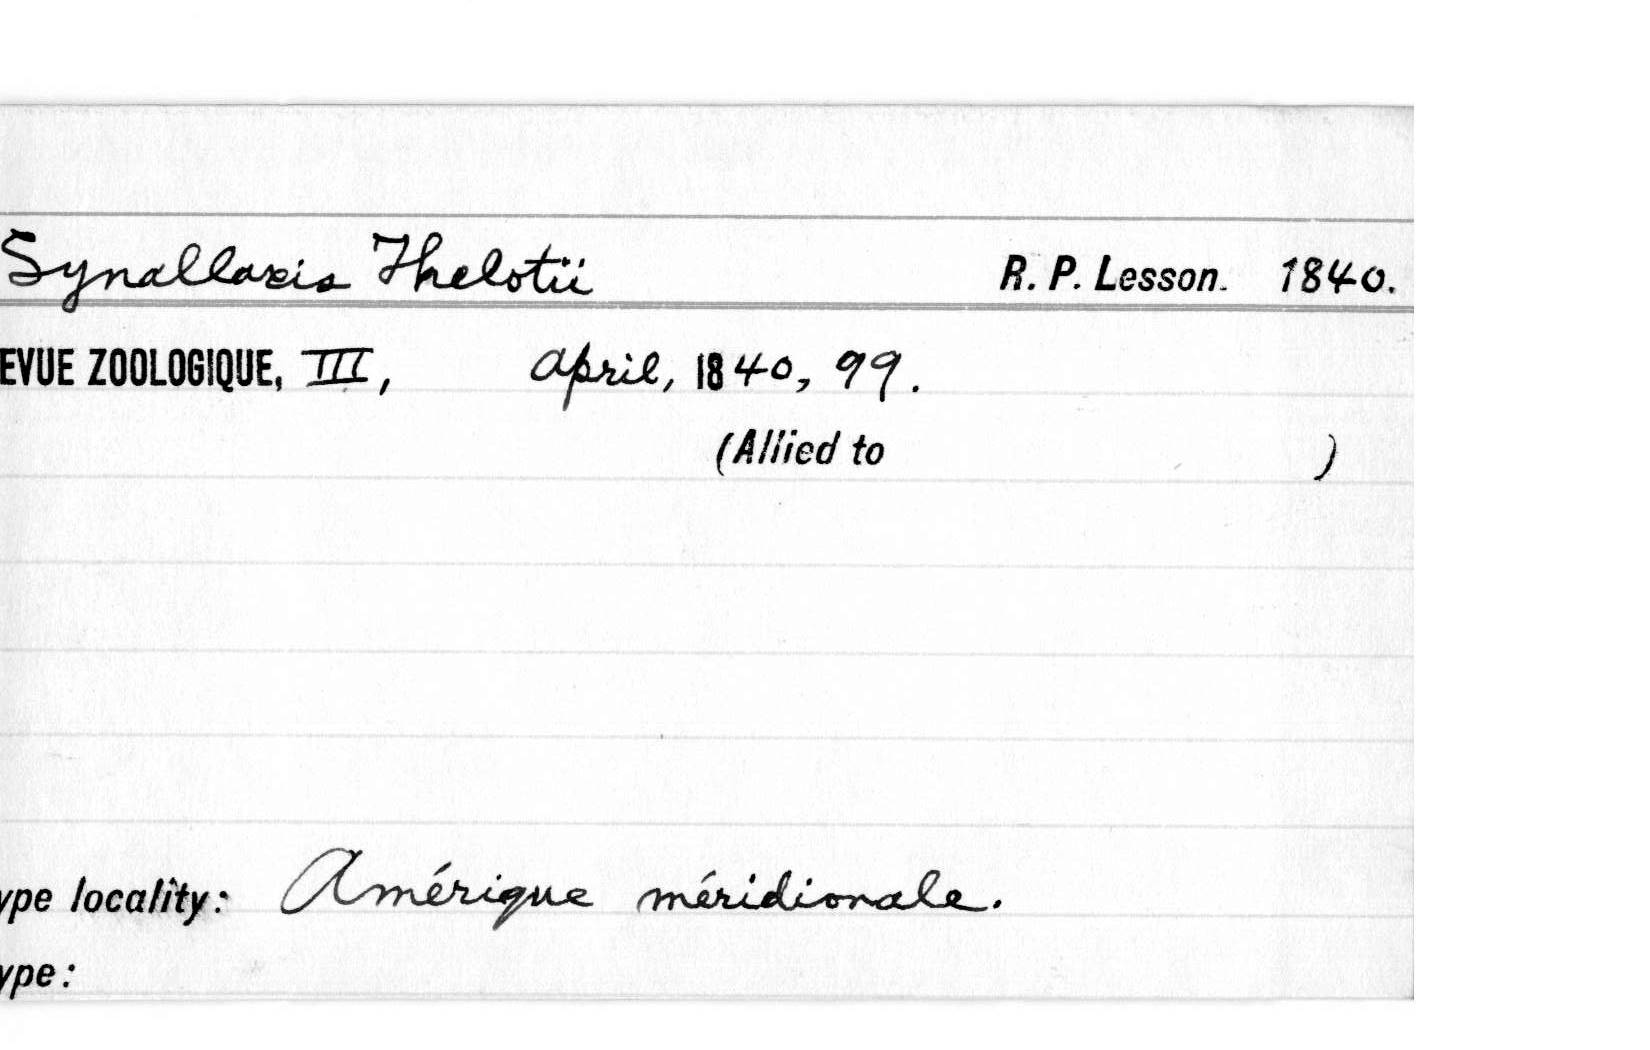 Synallaxis Thelotii R. P. Lesson. 1840.
EVUE ZOOLOGIQUE, III, April, 1840, 99.
(Allied to )
ype locality: Amérique méridionale.
ype: